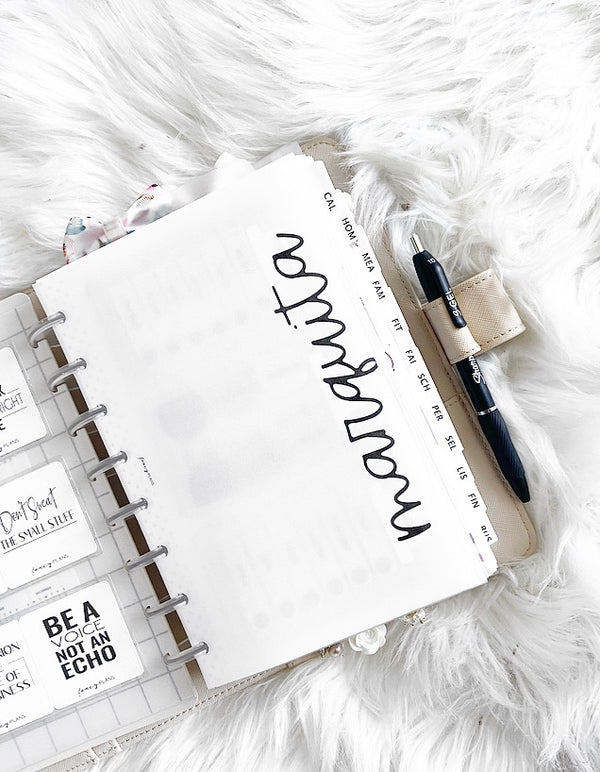 marquita
CAL
HOM
MEA
FAM
FIT
FAI
SCH
PER
SEL
LIS
FIN
BUS
S-GEL
fancy PLANS
PLANS
Don't Sweat
THE SMALL STUFF
fancy PLANS
BE A
VOICE
NOT AN
ECHO
fancy PLANS
E OF
PLANS